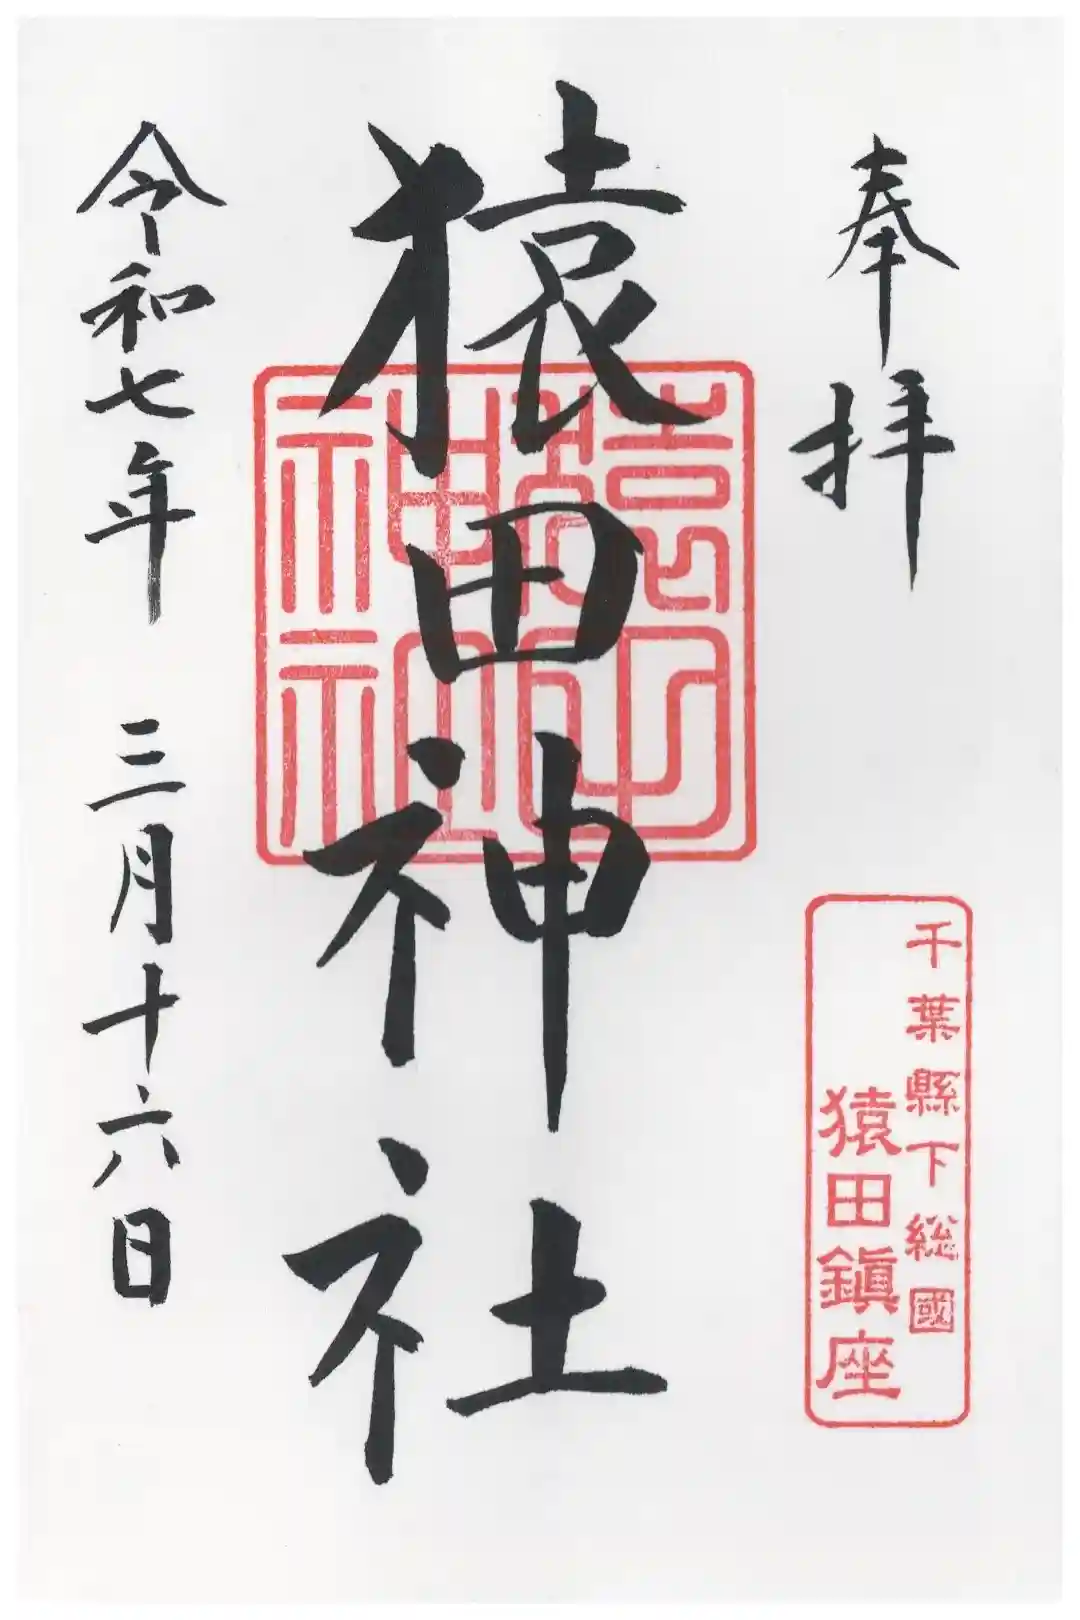 奉拝
千葉縣下総國
猿田鎭座
猿田神社
猿田神社
令和七年 三月十六日